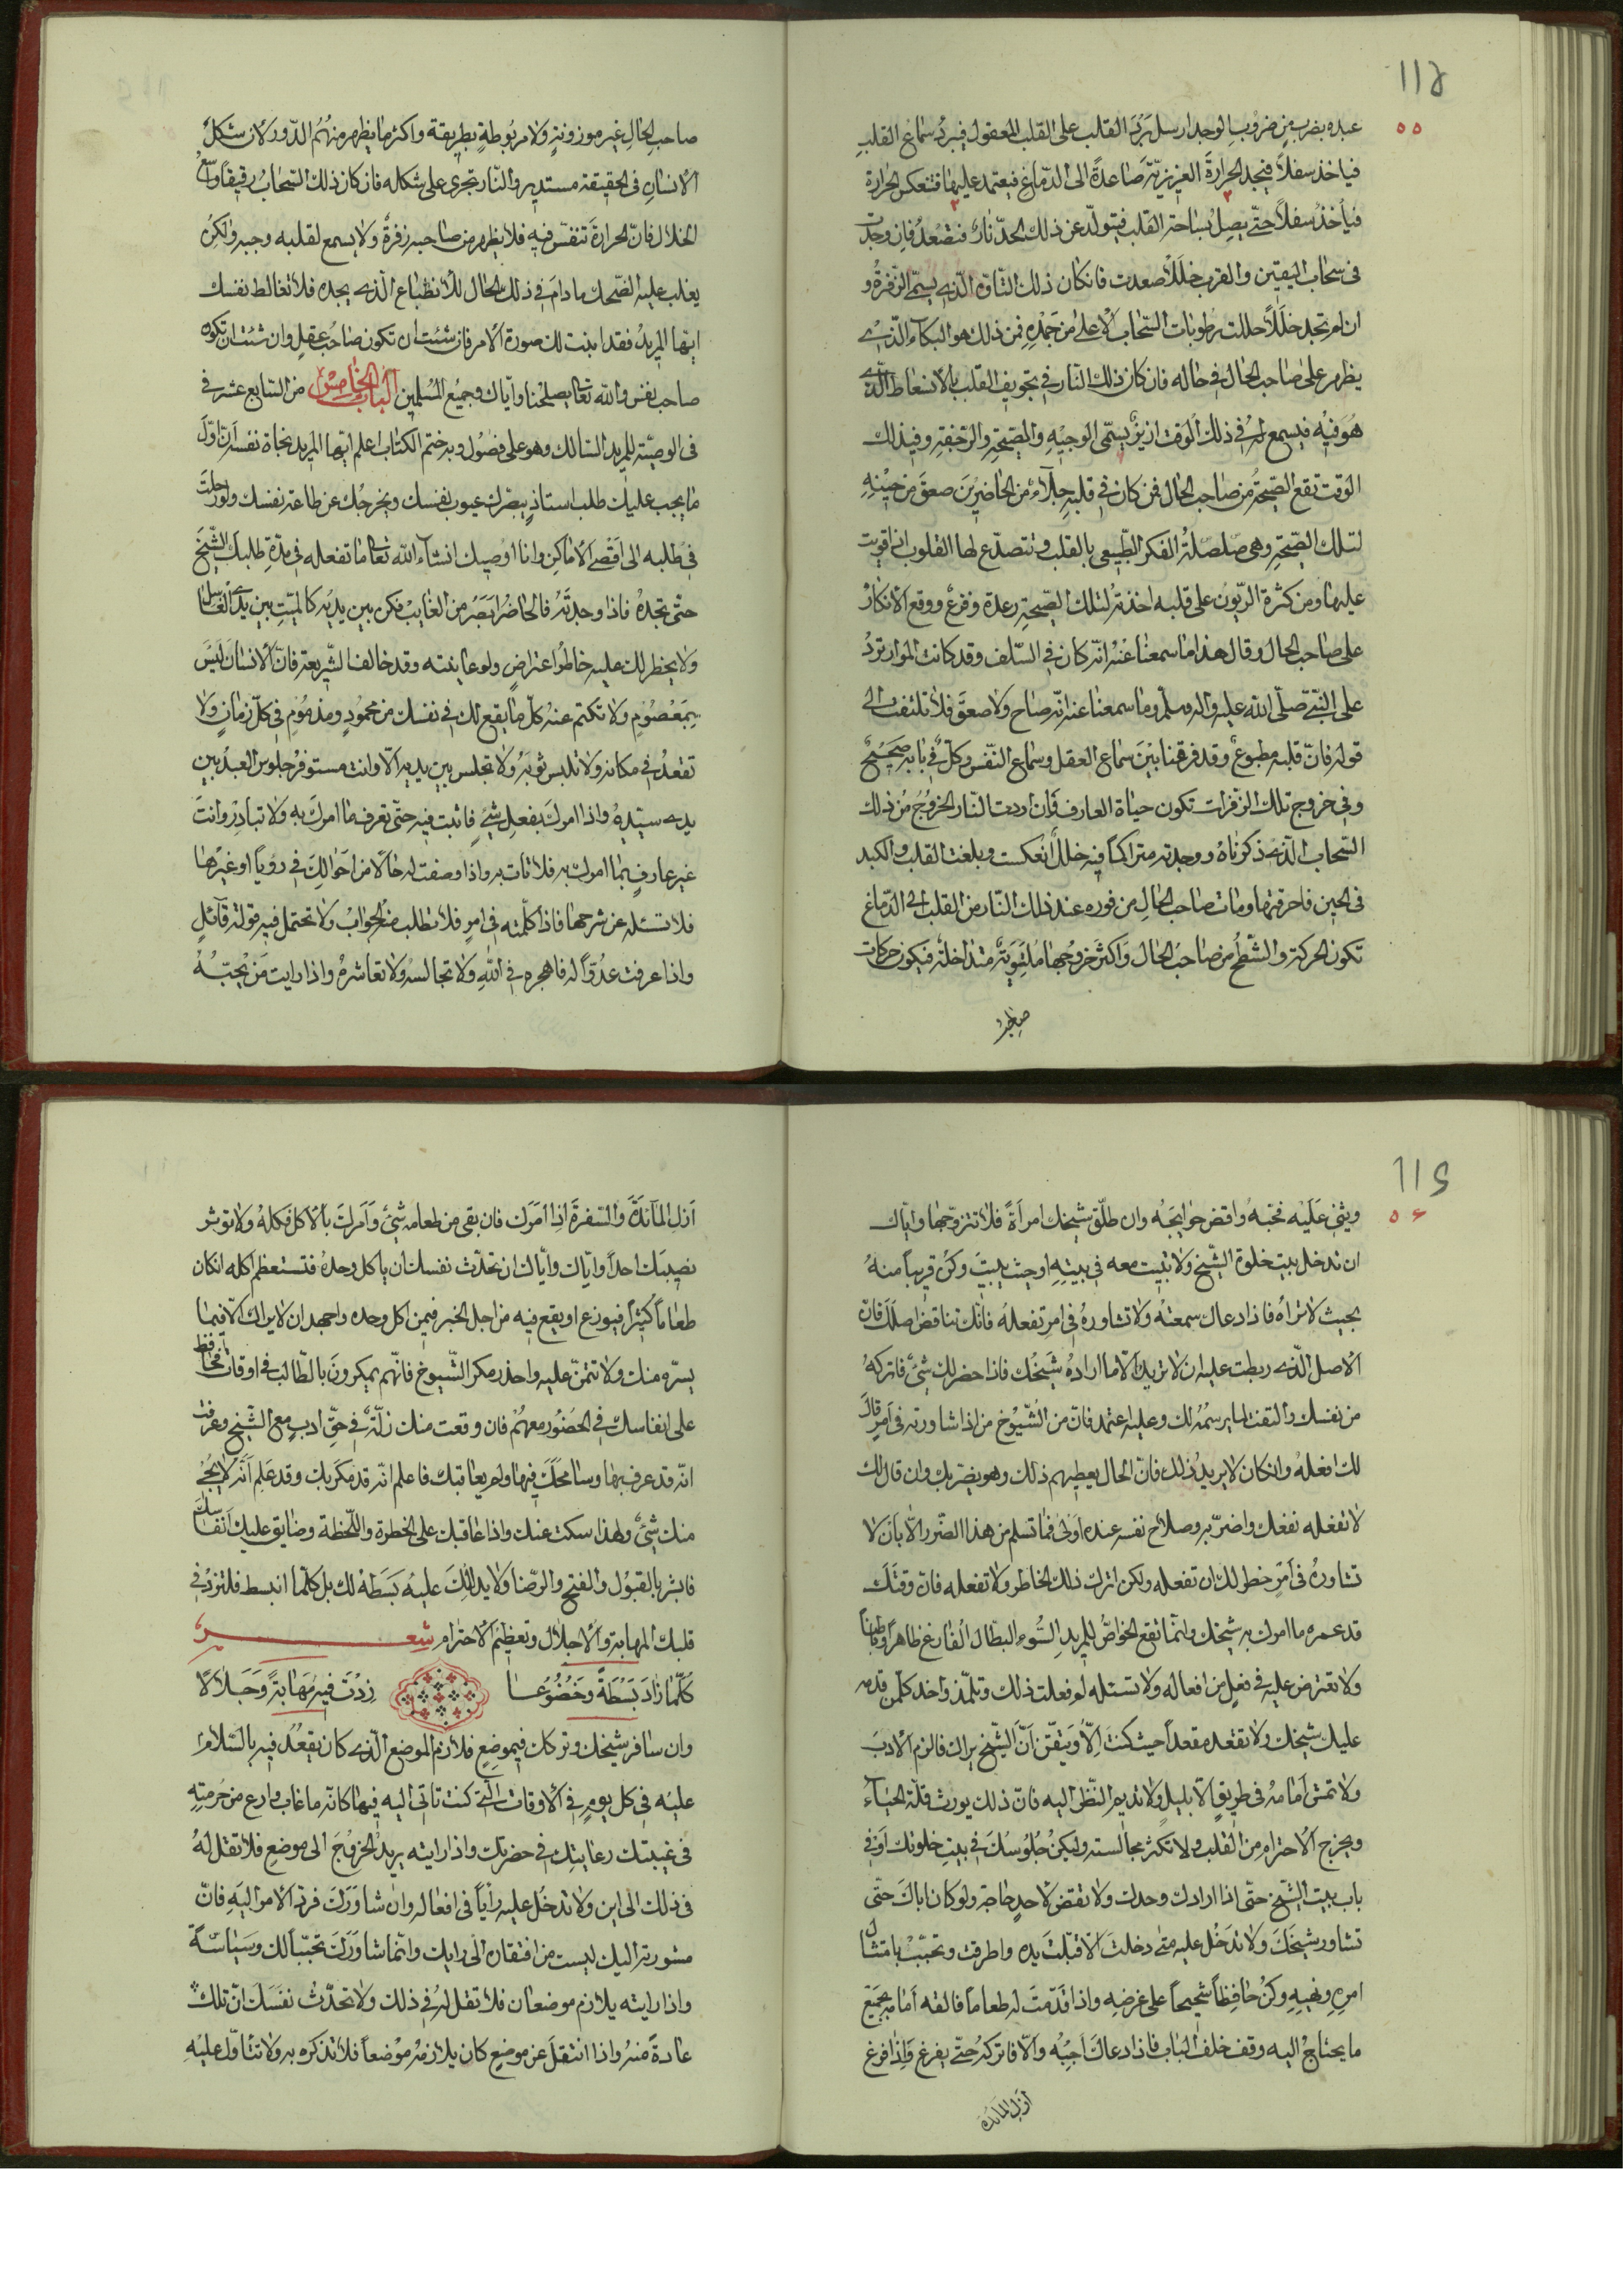 ١١٥
٥٥
عبده بضرب من ضروب الوجد ارسل برد القلب على القلب المعقول فيبرد سماع القلب
فياخذ سفلاً فيجد الحرارة الغريزيّة صاعدةً الى الدّماغ فيعتمد عليها فتنعكس الحرارة
فيأخذُ سفلاً حتّى يصِلُ بساحة القلب فيتولّد عن ذلك الحدّ نارٌ فتصعُد فان وجدت
فى سحاب اليقين والقرب خللاً صعدت فانكان ذلك التّاوّه الّذى يسمّى الزّفرةُ و
ان لم تجد خللاً حللت رطوبات السّحاب الاعلى من جَمْدِهِ فمن ذلك هو البكاء الّذى
يظهر على صاحب الحال فى حاله فان كان ذلك النار فى تجويف القلب بالانبساط الّذى
هُوَ فيهِ فيسمع له فى ذلك الوقت ازيزٌ يسمّى الوجيبُهِ والصّيحةِ والرّجفةِ وفى ذلك
الوقت تقع الصّيحةُ من صاحب الحال فمن كان فى قلبهِ جلآءٌ من الحاضرِين صعقَ من حينِهِ
لتلك الصّيحةِ وهى صلصلةُ الفكر الطّبيعى بالقلب وتتصدّع لها القلوب ان قويت
عليها ومن كثرة الرّيون على قلبه اخذته لتلك الصّيحةِ رعدة وفزعٌ ووقع الانكارُ
على صاحب الحال وقال هذا ما سمعنا عنهُ انّه كان فى السّلف وقد كانت الموارد تردُ
على النّبىّ صلّى الله عليه واله وسلّم وما سمعنا عنه انّه صاح ولا صعقَ فلا تلتفت الى
قوله فانّ قلبه مطبوعٌ وقد فرقنا بين سماع العقل وسماع النّفس وكلٌّ فى بابه صحيحٌ
وفى خروج تلك الزّفرات تكون حياة العارف فان اردت النّار الخروج من ذلك
السّحاب الّذى ذكرناهُ ووجدته متراكماً فيه خللٌ انعكست وبلغت القلب والكبد
فى الحين فاحرقتها ومات صاحب الحالِ من فوره عند ذلك النّار من القلب الى الدّماغ
تكون الحركة والشّطح من صاحب الحال واكثر خروجها مُلتوِيَةٌ متداخلة فيكون حركات
صاحب الحالِ غير موزونةٍ ولا مربوطةٍ بطريقة واكثر ما يظهر منهُمُ الدّور لانّ شكلَ
الانسانِ فى الحقيقة مستدير والنّار تجرى على شكاله فان كان ذلك السّحابُ رقيقاً واسعُ
الخلال فانّ الحرارة تتنفّس فيه فلا يظهر من صاحبه زفرةٌ ولا يسمع لقلبه وجبه ولكن
يغلب عليه الضّحك ما دام فى ذلك الحال للانطباع الّذى يجده فلا تغالط نفسك
ايّها المريدُ فقد ابنت لك صورة الامر فان شئت ان تكون صاحب عقلٍ وان شئت ان تكون
صاحب نفس والله تعالى يصلحنا وايّاك وجميع المسلمين الباب الخامس من السّابع عشر فى
فى الوصيّة للمريد السّالك وهو على فصُول وبه ختم الكتاب اعلم ايّها المريد نجاة نفسه انّ اوّل
ما يجب عليك طلب استاذٍ يبصّرك عيوب نفسك ويخرجُك عن طاعة نفسك ولو رحلت
فى طلبه الى اقصى الاماكِن وانا اوصيك انشآء الله تعالى ما تفعله فى مدّة طلبك الشّيخَ
حتّى تجدهُ فاذا وجدتَهُ فالحاضرُ ابصَرُ من الغايبْ فكن بين يديه كالميّتِ بين يدى الغاسل
ولا يخطر لك عليه خاطرُ اعتراضٍ ولو عاينته وقد خالف الشّريعة فانّ الانسان ليس
بمعصُومٍ ولا تكتم عنهُ كلّ ما يقع لك فى نفسك من محمُودٍ ومذمومٍ فى كلّ زمانٍ ولا
تقعدُ فى مكانه ولا تلبس ثوبَهُ ولا تجلس بين يديه الّا وانت مستوفز جلوس العبد بين
يدى سيّدهُ واذا امرك بفعلِ شىءٍ فاثبت فيه حتّى تعرف ما امرك به ولا تبادر وانت
غير عارفٍ بما امرك به فلا تات به واذا وصفت له حالاً من احوالِكَ فى رؤياً او غيرها
فلا تسئله عن شرحها فاذا كلّمته فى امرٍ فلا تطلب منه الجوابُ ولا تحتمل فيه قولة قآئلٍ
واذا عرفت عدُوّاً له فاهجره فى اللهِ ولا تجالسهُ ولا تعاشرهُ واذا رايت مَنْ يُحبّهُ
١١٦
٥٦
ويثنى عليه فحبّهُ واقض حوايجَهُ وان طلّق شيخك امرأةً فلا تتزوّجها وايّاك
ان تدخل بيت خلوة الشّيخ ولا تبيت معه فى بيتِهِ او حيث يبيتَ وكن قريباً منهُ
بحيث لا تراهُ فاذا دعاك سمعته ولا تشاورهُ فى امرٍ تفعله فانّك تناقض اصلَكَ فانّ
الاصل الّذى ربطت عليه ان لا تريد الّا ما ارادهُ شيخُك فاذا حضر لك شىءٌ فاتركهُ
من نفسك والتفت لما يرسمُهُ لك وعليه اعتمد فانّ من الشّيُوخ من اذا شاورته فى امرٍ قال
لك افعلهُ وانكان لا يريد ذلك فانّ الحال يعطيهم ذلك وهو يضرّ بك وان قال لك
لا تفعله نفعك واضرّ به وصلاح نفسه عنده اَولى فما تسلم من هذا الضّرر الّا بان لا
تشاورهُ فى امرٍ خطر لك ان تفعله ولكن اترك ذلك الخاطر ولا تفعله فانّ وقتَك
قد عمره ما امرك به شيخك وانّما تقع الخواصّ للمريد السّوء البطّال الفارغ ظاهراً وباطناً
ولا تعترض عليه فى فعلٍ من افعاله ولا تسئله لم فعلت ذلك وتلمّذ واخد كلّمن قدمه
عليك شيخك ولا تقعد مقعداً حيث كنتَ الّا وتيقّن انّ الشّيخ يراك فالزم الادبَ
ولا تمش امامهُ فى طريقٍ الّا بليلٍ ولا تديم النّظر اليه فانّ ذلك يورث قلّة الحيآء
ويخرج الاحترام من القلب ولا تكثر مجالسته وليكنْ جُلُوسُكَ فى بيتِ خلوتك اَو فى
باب بيت الشّيخ حتّى اذا ارادك وجدك ولا تقض لاحدٍ حاجة ولو كان اباك حتّى
تشاور شيخكَ ولا تدخُل عليه متى دخلتَ الّا قبّلت يده واطرقت وتحبّب بامتثال
امرِهِ ونهيِهِ وكن حافِظاً شحيحاً على غرضِهِ واذا قدّمت له طعاماً فالقه امامه بجميع
ما يحتاجُ اليه وقف خلف الباب فاذا دعاك اَجِبْه والّا فاتركهُ حتّى يفرغ واذا فرغ
اَزل المآئدة
اَزلِ المآئدَةَ والسّفرةَ اذا امَرَك فان بقى من طعامه شىءٌ وامرك بالاكل فكلهُ ولا توثر
بنصيبك احداً وايّاك وايّاك ان تحدّث نفسك ان ياكل وحدهُ فتستعظم اكله انكان
طعاماً كثيراً فيوزع او يقع فيه من اجل الخبر فيمن اكل وحده واجهد ان لا يراك الّا فيما
يسرّه منك ولا تتمنّ عليه واحذر مكر الشّيوخ فانّهم يمكرونَ بالطّالب فى اوقات فحافظ
على انفاسك فى الحضُور معهُمْ فان وقعت منك زلّةٌ فى حقّ ادبٍ مع الشّيخ وعرفت
انّه قد عرف بها وسامحك فيها ولم يعاقبك فاعلم انّه قد مكر بك وقد علِم انّه لا يجئ
منك شىءٌ ولهذا سكت عنك واذا عاقبك على الخطرة واللّحظة وضايق عليك انفاسك
فابشر بالقبُول والفتح والرّضا ولا يدللك عليه بَسَطَهْ لك بل كلّما انبسط فلتزدْ فى
قلبك المهابة والاجلال وتعظيم الاحترام شعر
كُلّما زادَ بَسْطَةً وخُضُوعا زِدْتَ فيهِ مَهَابَةً وَجَلالاً
وان سافر شيخك وتركك فى موضِعٍ فلازم الموضع الّذى كان يقعُدُ فيهِ بالسّلام
عليه فى كلّ يومٍ فى الاوقات الّتى كنت تاتى اليه فيها كانّه ما غاب وارع من حُرمتِهِ
فى غيبتك رعايتك فى حضرتك واذا رايته يريد الخروج الى موضعٍ فلا تقل لهُ
فى ذلك الى اين ولا تدخُل عليه رأياً فى افعاله وان شاورَك فردّ الامر اليهِ فانّ
مشورته اليك ليست من افتقاره الى رايك وانّما شاورَك تحبّباً لك وسياسةً
واذا رايته يلازم موضعان فلا تقل له فى ذلك ولا تحدّث نفسَك انّ تلك
عادةً منهُ واذا انتقلَ عن موضعٍ كان يلازمُهُ موضعاً فلا تذكره به ولا تتاوّل عليهِ